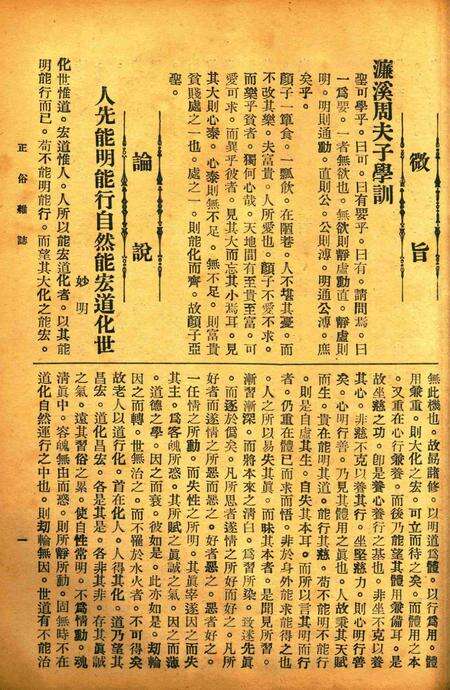 微旨
濂溪周夫子學訓
聖可學乎。曰可。曰有要乎。曰有。請問焉。曰
一爲要。一者無欲也。無欲則靜虛動直。靜虛則
明。明則通動。直則公。公則溥。明通公溥。庶
矣乎。
顏子一簞食。一瓢飲。在陋巷。人不堪其憂。而
不改其樂。夫富貴。人所愛也。顏子不愛不求。
而樂乎貧者。獨何心哉。天地間有至貴至富。可
愛可求。而異乎彼者。見其大而忘其小焉耳。見
其大則心泰。心泰則無不足。無不足。則富貴
貧賤處之一也。處之一。則能化而齊。故顏子亞
聖。
論說
人先能明能行自然能宏道化世
妙明
化世惟道。宏道惟人。人所以能宏道化者。以其能
明能行而已。苟不能明能行。而望其大化之能宏。
正俗雜誌
無此機也。故易諸修。以明道爲體。以行爲用。體
用兼重。則大化之宏。可立而待之矣。而體用之本
。又重在心行兼養。而後乃能望其體用兼備耳。是
故坐慈之功。卽是養心養行之基也。非坐不克以養
其心。非慈不克以養其行。坐堅慈力。則心明行善
矣。心明行善。乃見其體用之眞也。人故秉其天賦
而生。貴在能明其道。能行其慈。苟不能明不能行
。則是自虐其生。自失其本耳。而所以言其明而行
者。仍重在體已而求而悟。非於身外能求能得之也
。人之所以易失其眞。而昧其本者。是聞見所習。
漸習漸深。而將本來之清白。爲習所染。致迷先眞
。而逐於僞矣。凡所思者遂情之所好而好之。凡所
好者而遂情之所惡而惡之。好者惡之。惡者好之。
一任情之所動。而失性之所明。其眞宰遂因之而失
其主。爲客魄所惑。其所賦之眞誠之氣。因之而蕩
。道德之學。因之而衰。彼如是。此亦如是。刼輪
因之而轉。世人之流。而不罹於水火者。不可得矣
故老人以道行化。首在化人。人得其化。道乃望其
昌宏。道化昌宏。各是其是。各非其非。存其眞誠
之氣。遠其習俗之累。使自性常明。不爲情動。魂
清眞中。容魄無由而惑。則所靜所動。固無時不在
道化自然運行之中也。則刼輪無因。世道有不能治
一